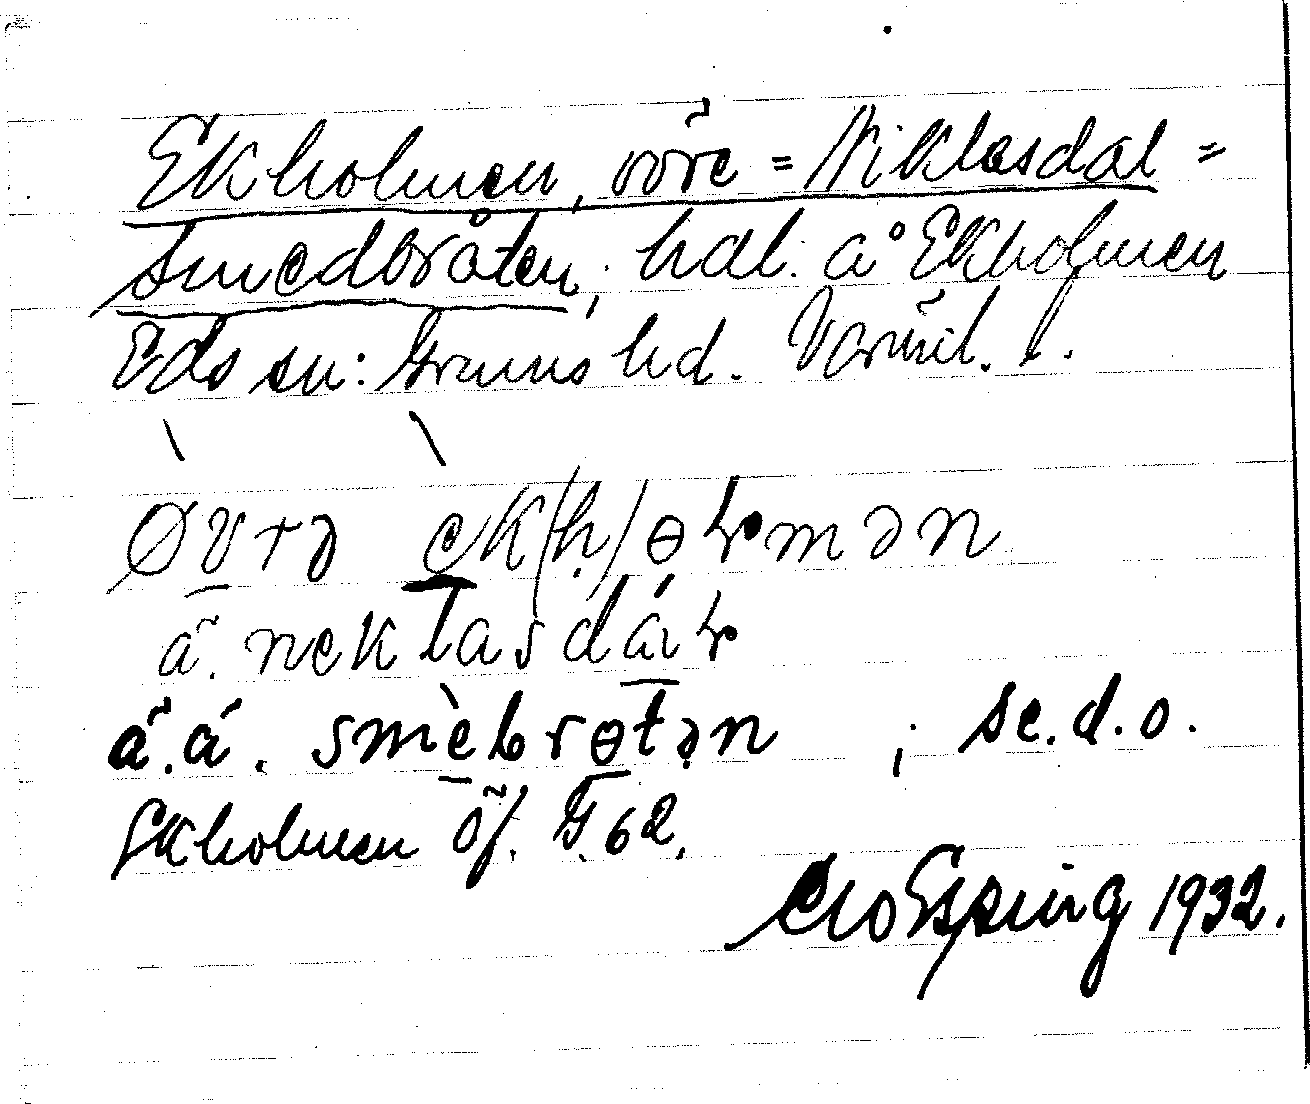 Ekholmen, övre = Niklasdal =
Smedbråten; hdl. å Ekholmen
Eds sn: Grums hd. Värml. l.
øvrə ek(h)ɵɽmən
ä. neklasdáɽ
ä.á. smèbrɵtən ; se.d.o.
Ekholmen Öf. G. 62.
Clo Esping 1932.